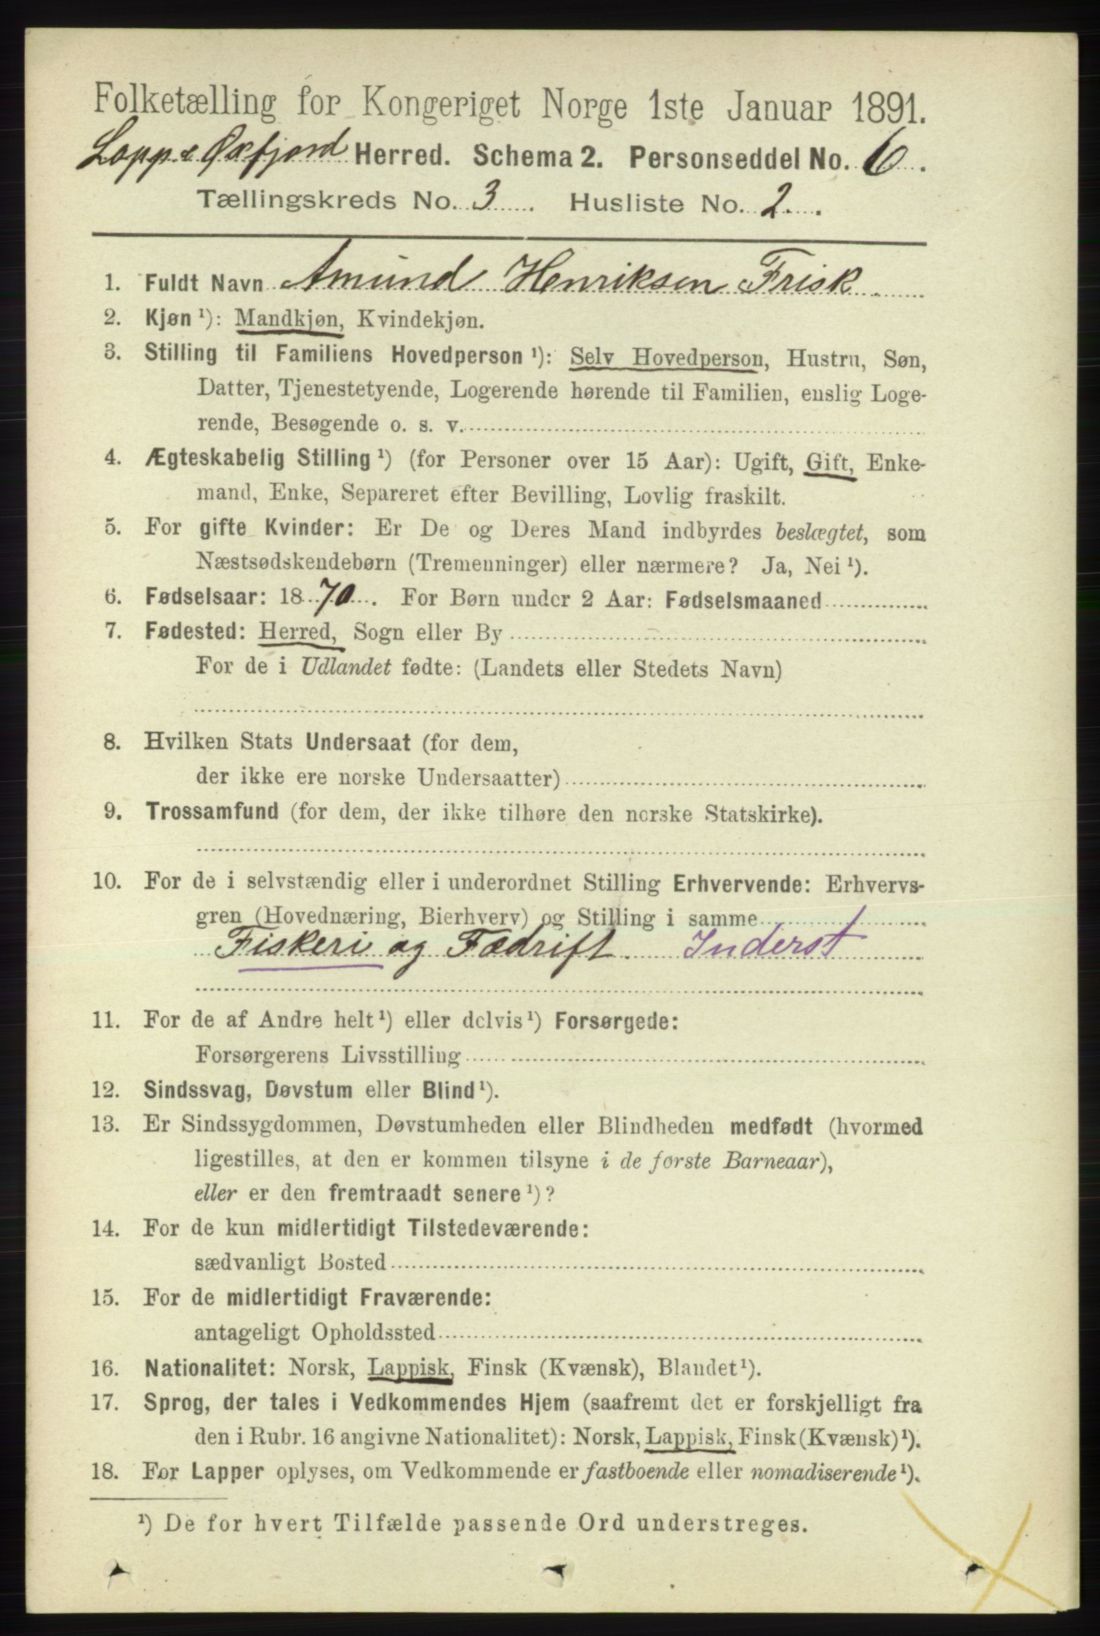 Folketælling for Kongeriget Norge 1ste Januar 1891.
Lopp & Øxfjord Herred. Schema 2. Personseddel No. 6.
Tællingskreds No. 3. Husliste No. 2.
1. Fuldt Navn Amund Henriksen Frisk
2. Kjøn ¹): Mandkjøn, Kvindekjøn.
3. Stilling til Familiens Hovedperson ¹): Selv Hovedperson, Hustru, Søn,
Datter, Tjenestetyende, Logerende hørende til Familien, enslig Loge-
rende, Besøgende o. s. v.
4. Ægteskabelig Stilling ¹) (for Personer over 15 Aar): Ugift, Gift, Enke-
mand, Enke, Separeret efter Bevilling, Lovlig fraskilt.
5. For gifte Kvinder: Er De og Deres Mand indbyrdes beslægtet, som
Næstsødskendebørn (Tremenninger) eller nærmere? Ja, Nei ¹).
6. Fødselsaar: 1870. For Børn under 2 Aar: Fødselsmaaned
7. Fødested: Herred, Sogn eller By
For de i Udlandet fødte: (Landets eller Stedets Navn)
8. Hvilken Stats Undersaat (for dem,
der ikke ere norske Undersaatter)
9. Trossamfund (for dem, der ikke tilhøre den norske Statskirke).
10. For de i selvstændig eller i underordnet Stilling Erhvervende: Erhvervs-
gren (Hovednæring, Bierhverv) og Stilling i samme
Fiskeri og Fædrift. Inderst
11. For de af Andre helt ¹) eller delvis ¹) Forsørgede:
Forsørgerens Livsstilling
12. Sindssvag, Døvstum eller Blind ¹).
13. Er Sindssygdommen, Døvstumheden eller Blindheden medfødt (hvormed
ligestilles, at den er kommen tilsyne i de første Barneaar),
eller er den fremtraadt senere ¹)?
14. For de kun midlertidigt Tilstedeværende:
sædvanligt Bosted
15. For de midlertidigt Fraværende:
antageligt Opholdssted
16. Nationalitet: Norsk, Lappisk, Finsk (Kvænsk), Blandet ¹).
17. Sprog, der tales i Vedkommendes Hjem (saafremt det er forskjelligt fra
den i Rubr. 16 angivne Nationalitet): Norsk, Lappisk, Finsk (Kvænsk) ¹).
18. For Lapper oplyses, om Vedkommende er fastboende eller nomadiserende ¹).
¹) De for hvert Tilfælde passende Ord understreges.